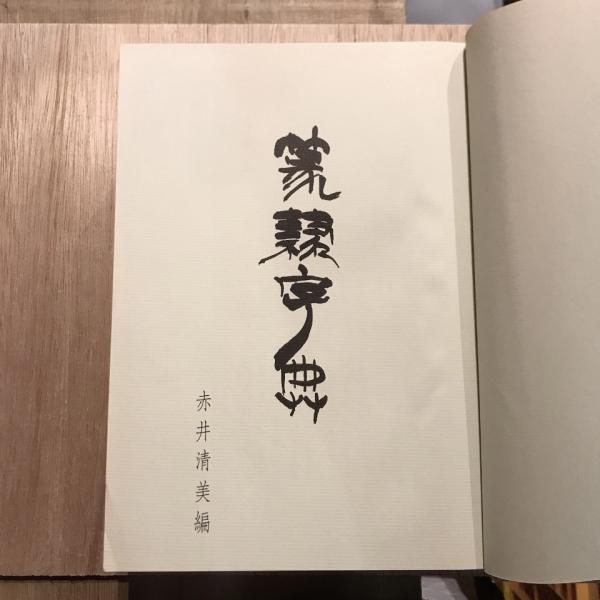 篆隷字典
赤井清美編